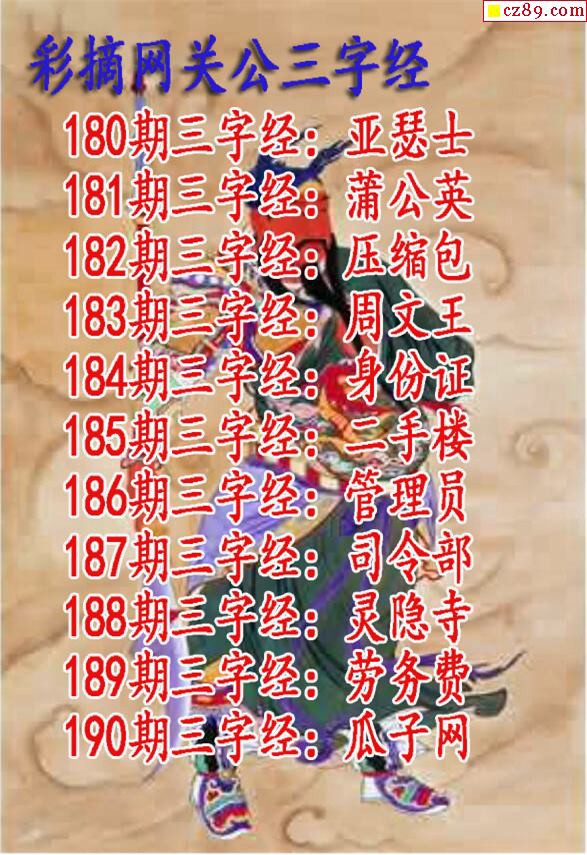 cz89.com
彩摘网关公三字经
180期三字经：亚瑟士
181期三字经：蒲公英
182期三字经：压缩包
183期三字经：周文王
184期三字经：身份证
185期三字经：二手楼
186期三字经：管理员
187期三字经：司令部
188期三字经：灵隐寺
189期三字经：劳务费
190期三字经：瓜子网